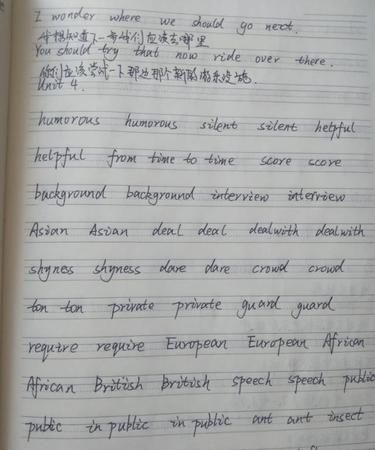 I wonder where we should go next.
我想知道下一步我们应该去哪里
You should try that now ride over there.
你们应该尝试一下那边那个新的游乐设施.
Unit 4.
humorous humorous silent silent helpful
helpful from time to time score score
background background interview interview
Asian Asian deal deal dealwith dealwith
shyness shyness dare dare crowd crowd
ton ton private private guard guard
require require European European African
African British British speech speech public
public in public in public ant ant insect